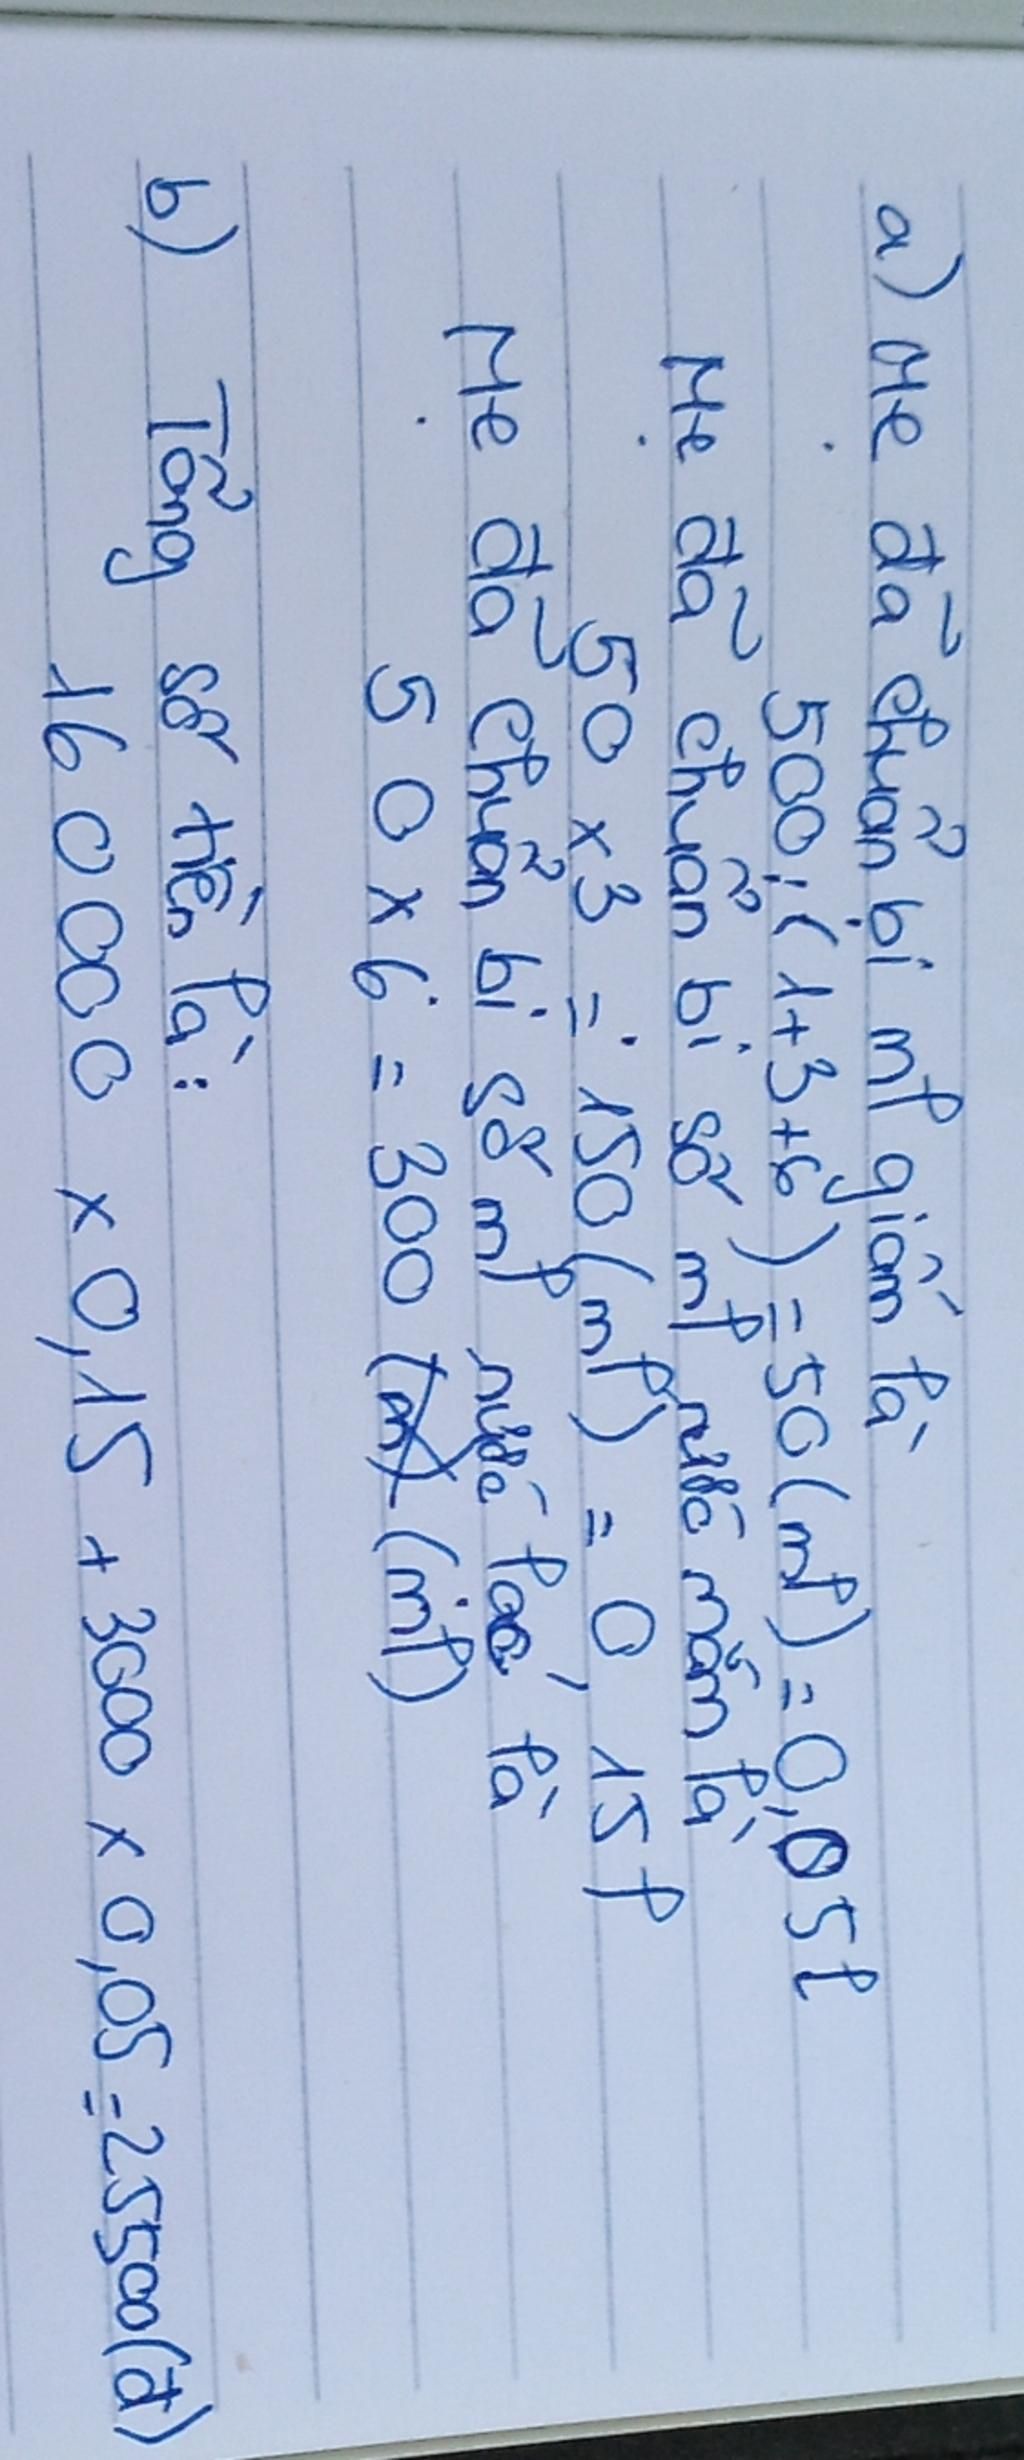 a) Mẹ đã chuẩn bị ml giấm là
500:(1+3+6)=50(ml)=0,05l
Mẹ đã chuẩn bị số ml nước mắm là
50 x 3 = 150(ml) = 0,15l
Mẹ đã chuẩn bị số ml nước lọc là
50 x 6 = 300 (ml)
b) Tổng số tiền là:
160000 x 0,15 + 3000 x 0,05 = 25500(đ)